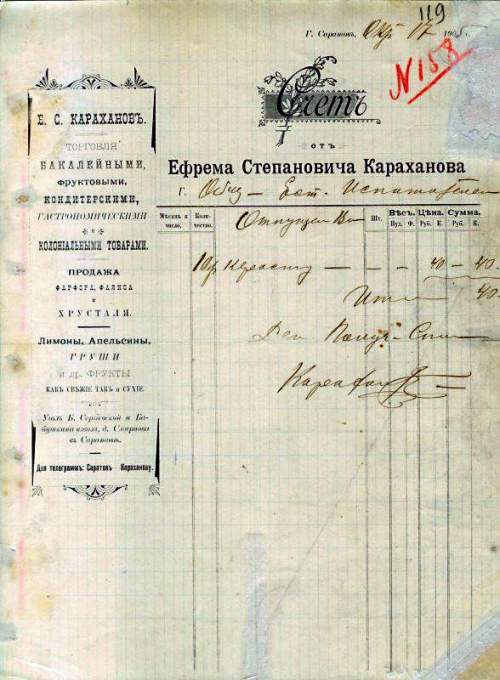 119
Г. Саратовъ, Окт 17 190
N 158
Счетъ
отъ
Ефрема Степановича Караханова
Г.
Е. С. КАРАХАНОВЪ.
ТОРГОВЛЯ
БАКАЛЕЙНЫМИ,
ФРУКТОВЫМИ,
КОНДИТЕРСКИМИ,
ГАСТРОНОМИЧЕСКИМИ
и
КОЛОНІАЛЬНЫМИ ТОВАРАМИ.
ПРОДАЖА
ФАРФОРА, ФАЯНСА
и
ХРУСТАЛЯ.
Лимоны, Апельсины,
ГРУШИ
и др. ФРУКТЫ
КАКЪ СВѢЖІЕ, ТАКЪ и СУХІЕ.
Уголъ Б. Сергіевской и Ба-
бушкина взвоза, д. Смирнова
въ Саратовѣ.
Для телеграммъ: Саратовъ Караханову.
Мѣсяцъ и число. Количество. Шт. Вѣсъ. Цѣна. Сумма.
Пуд. Ф. Руб. К. Руб. К.
Отпущен Ва
— — — 40 — 40
Ито 40
Ден Получ